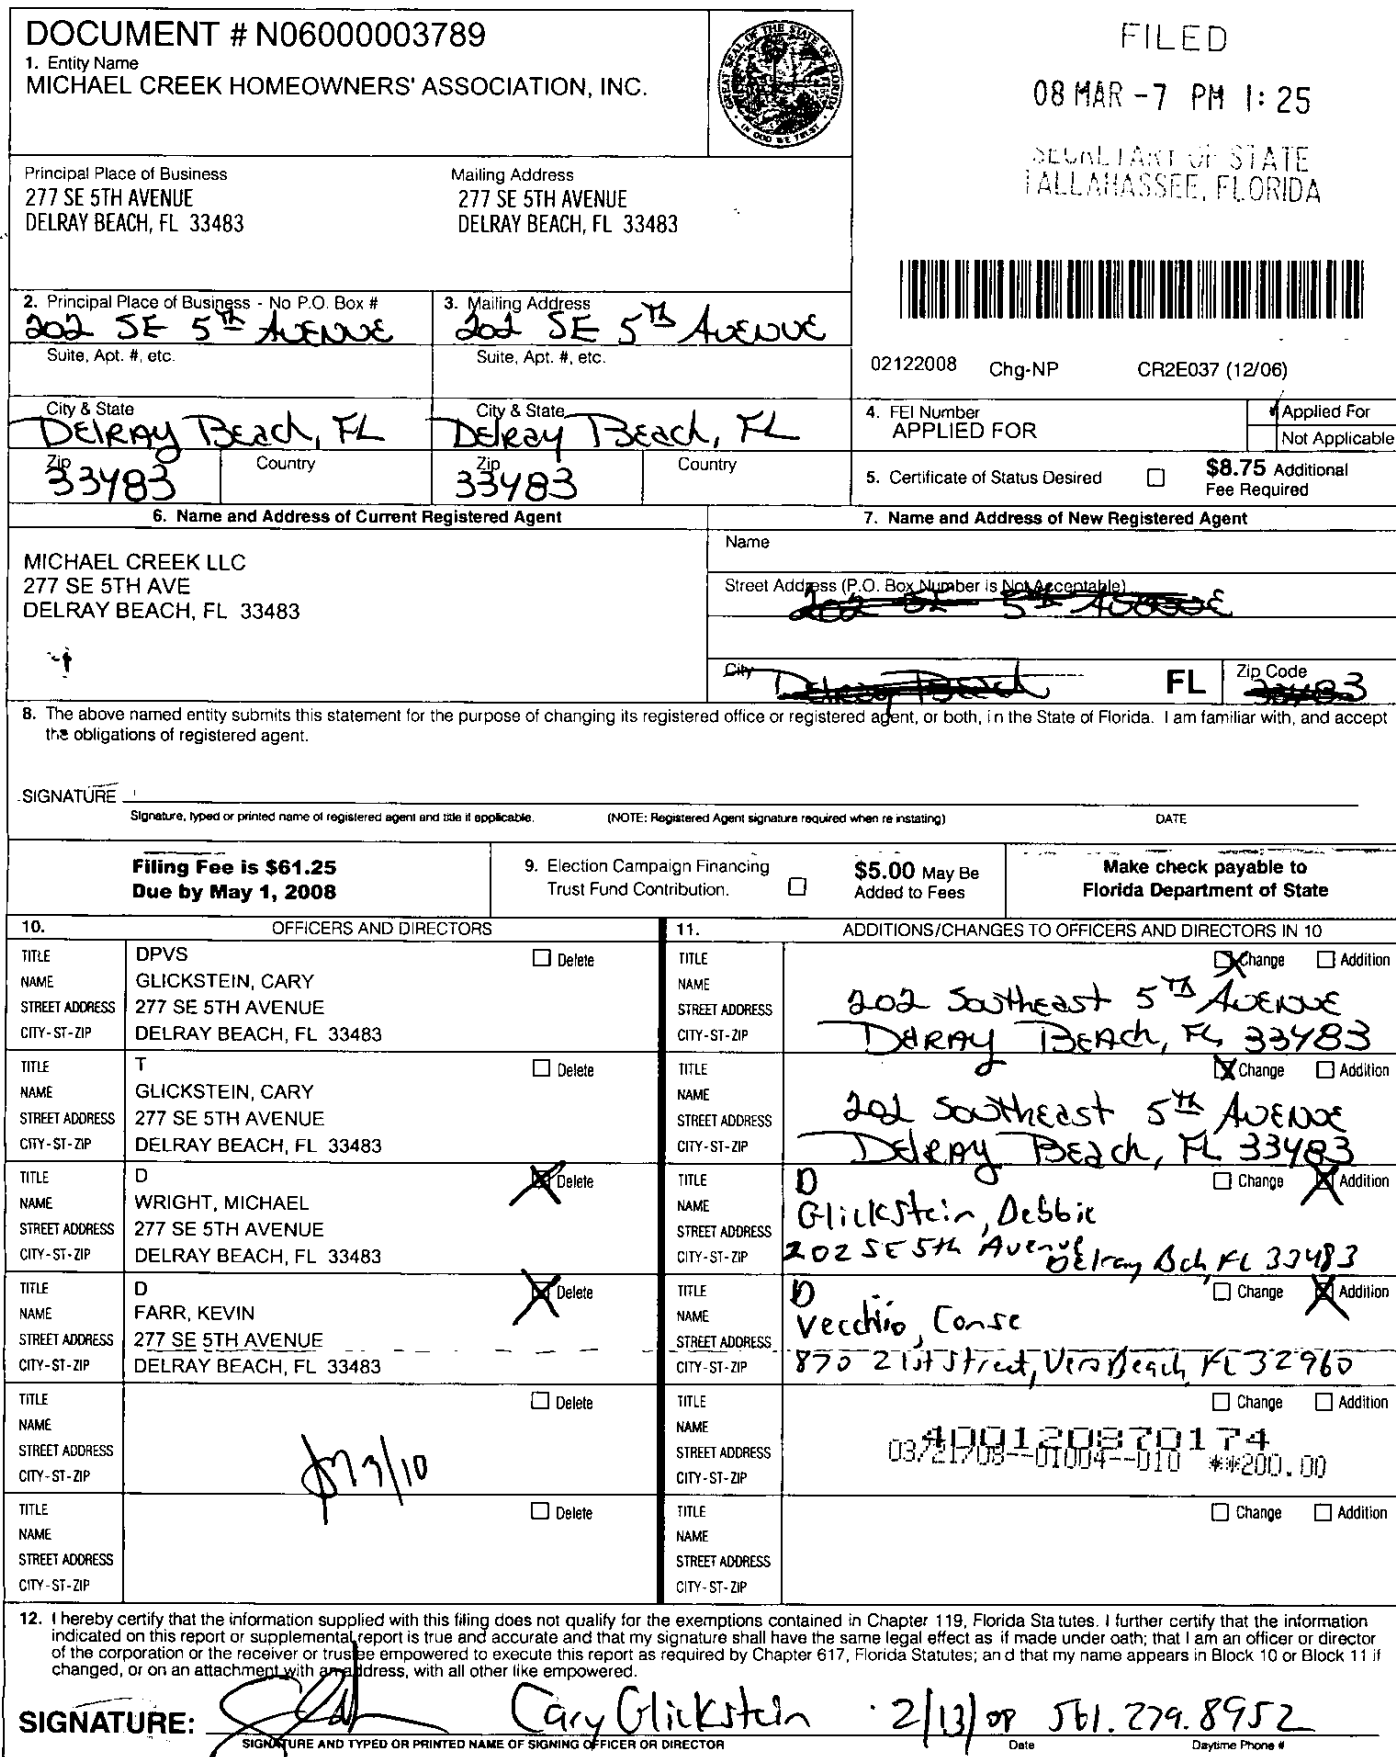 DOCUMENT # N06000003789
1. Entity Name
MICHAEL CREEK HOMEOWNERS' ASSOCIATION, INC.
GREAT SEAL OF THE STATE OF FLORIDA
IN GOD WE TRUST
FILED
08 MAR -7 PM 1:25
SECRETARY OF STATE
TALLAHASSEE, FLORIDA
Principal Place of Business
277 SE 5TH AVENUE
DELRAY BEACH, FL 33483
Mailing Address
277 SE 5TH AVENUE
DELRAY BEACH, FL 33483
2. Principal Place of Business - No P.O. Box #
202 SE 5th AVENUE
Suite, Apt. #, etc.
City & State
DELRAY Beach, FL
Zip
33483
Country
3. Mailing Address
202 SE 5th AVENUE
Suite, Apt. #, etc.
City & State
Delray Beach, FL
Zip
33483
Country
02122008 Chg-NP CR2E037 (12/06)
4. FEI Number
APPLIED FOR
Applied For
Not Applicable
5. Certificate of Status Desired
$8.75 Additional
Fee Required
6. Name and Address of Current Registered Agent
MICHAEL CREEK LLC
277 SE 5TH AVE
DELRAY BEACH, FL 33483
7. Name and Address of New Registered Agent
Name
Street Address (P.O. Box Number is Not Acceptable)
202 SE 5th AVENUE
City
Delray Beach
FL
Zip Code
33483
8. The above named entity submits this statement for the purpose of changing its registered office or registered agent, or both, in the State of Florida. I am familiar with, and accept
the obligations of registered agent.
SIGNATURE
Signature, typed or printed name of registered agent and title if applicable. (NOTE: Registered Agent signature required when reinstating) DATE
Filing Fee is $61.25
Due by May 1, 2008
9. Election Campaign Financing
Trust Fund Contribution.
$5.00 May Be
Added to Fees
Make check payable to
Florida Department of State
10. OFFICERS AND DIRECTORS
TITLE DPVS Delete
NAME GLICKSTEIN, CARY
STREET ADDRESS 277 SE 5TH AVENUE
CITY-ST-ZIP DELRAY BEACH, FL 33483
TITLE T Delete
NAME GLICKSTEIN, CARY
STREET ADDRESS 277 SE 5TH AVENUE
CITY-ST-ZIP DELRAY BEACH, FL 33483
TITLE D Delete
NAME WRIGHT, MICHAEL
STREET ADDRESS 277 SE 5TH AVENUE
CITY-ST-ZIP DELRAY BEACH, FL 33483
TITLE D Delete
NAME FARR, KEVIN
STREET ADDRESS 277 SE 5TH AVENUE
CITY-ST-ZIP DELRAY BEACH, FL 33483
TITLE Delete
NAME
STREET ADDRESS
CITY-ST-ZIP
3/10
TITLE Delete
NAME
STREET ADDRESS
CITY-ST-ZIP
11. ADDITIONS/CHANGES TO OFFICERS AND DIRECTORS IN 10
TITLE Change Addition
NAME
STREET ADDRESS 202 Southeast 5th AVENUE
CITY-ST-ZIP DELRAY BEACH, FL 33483
TITLE Change Addition
NAME
STREET ADDRESS 202 Southeast 5th AVENUE
CITY-ST-ZIP DELRAY Beach, FL 33483
TITLE D Change Addition
NAME Glickstein, Debbie
STREET ADDRESS
CITY-ST-ZIP 202 SE 5th Avenue Delray Bch, FL 33483
TITLE D Change Addition
NAME Vecchio, Conse
STREET ADDRESS
CITY-ST-ZIP 870 21st Street, Vero Beach, FL 32960
TITLE Change Addition
NAME
400120870174
STREET ADDRESS 03/21/08--01004--010 **200.00
CITY-ST-ZIP
TITLE Change Addition
NAME
STREET ADDRESS
CITY-ST-ZIP
12. I hereby certify that the information supplied with this filing does not qualify for the exemptions contained in Chapter 119, Florida Statutes. I further certify that the information
indicated on this report or supplemental report is true and accurate and that my signature shall have the same legal effect as if made under oath; that I am an officer or director
of the corporation or the receiver or trustee empowered to execute this report as required by Chapter 617, Florida Statutes; and that my name appears in Block 10 or Block 11 if
changed, or on an attachment with an address, with all other like empowered.
SIGNATURE: Cary Glickstein 2/13/08 561.279.8952
SIGNATURE AND TYPED OR PRINTED NAME OF SIGNING OFFICER OR DIRECTOR Date Daytime Phone #